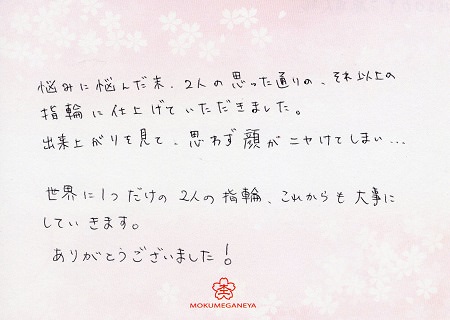 悩みに悩んだ末、2人の思った通りの、それ以上の
指輪に仕上げていただきました。
出来上がりを見て、思わず顔がニヤけてしまい…
世界に1つだけの2人の指輪、これからも大事に
していきます。
ありがとうございました!
MOKUMEGANEYA